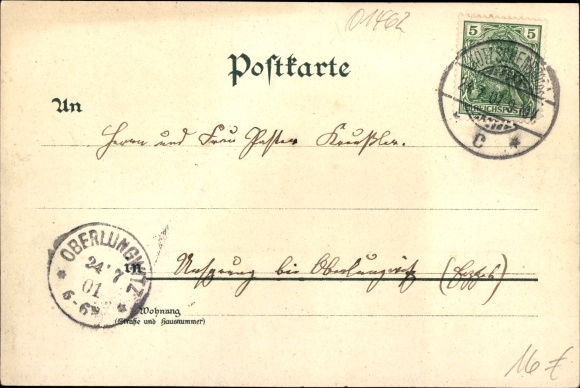 01462
5 5
REICHSPOST
C *
Postkarte
An
Herrn und Frau Pastor Kreußler.
OBERLUNGWITZ
24 7
01
5-6N
* *
in Ursprung bei Oberlungwitz (Erzgeb)
Wohnung
(Straße und Hausnummer)
16 €